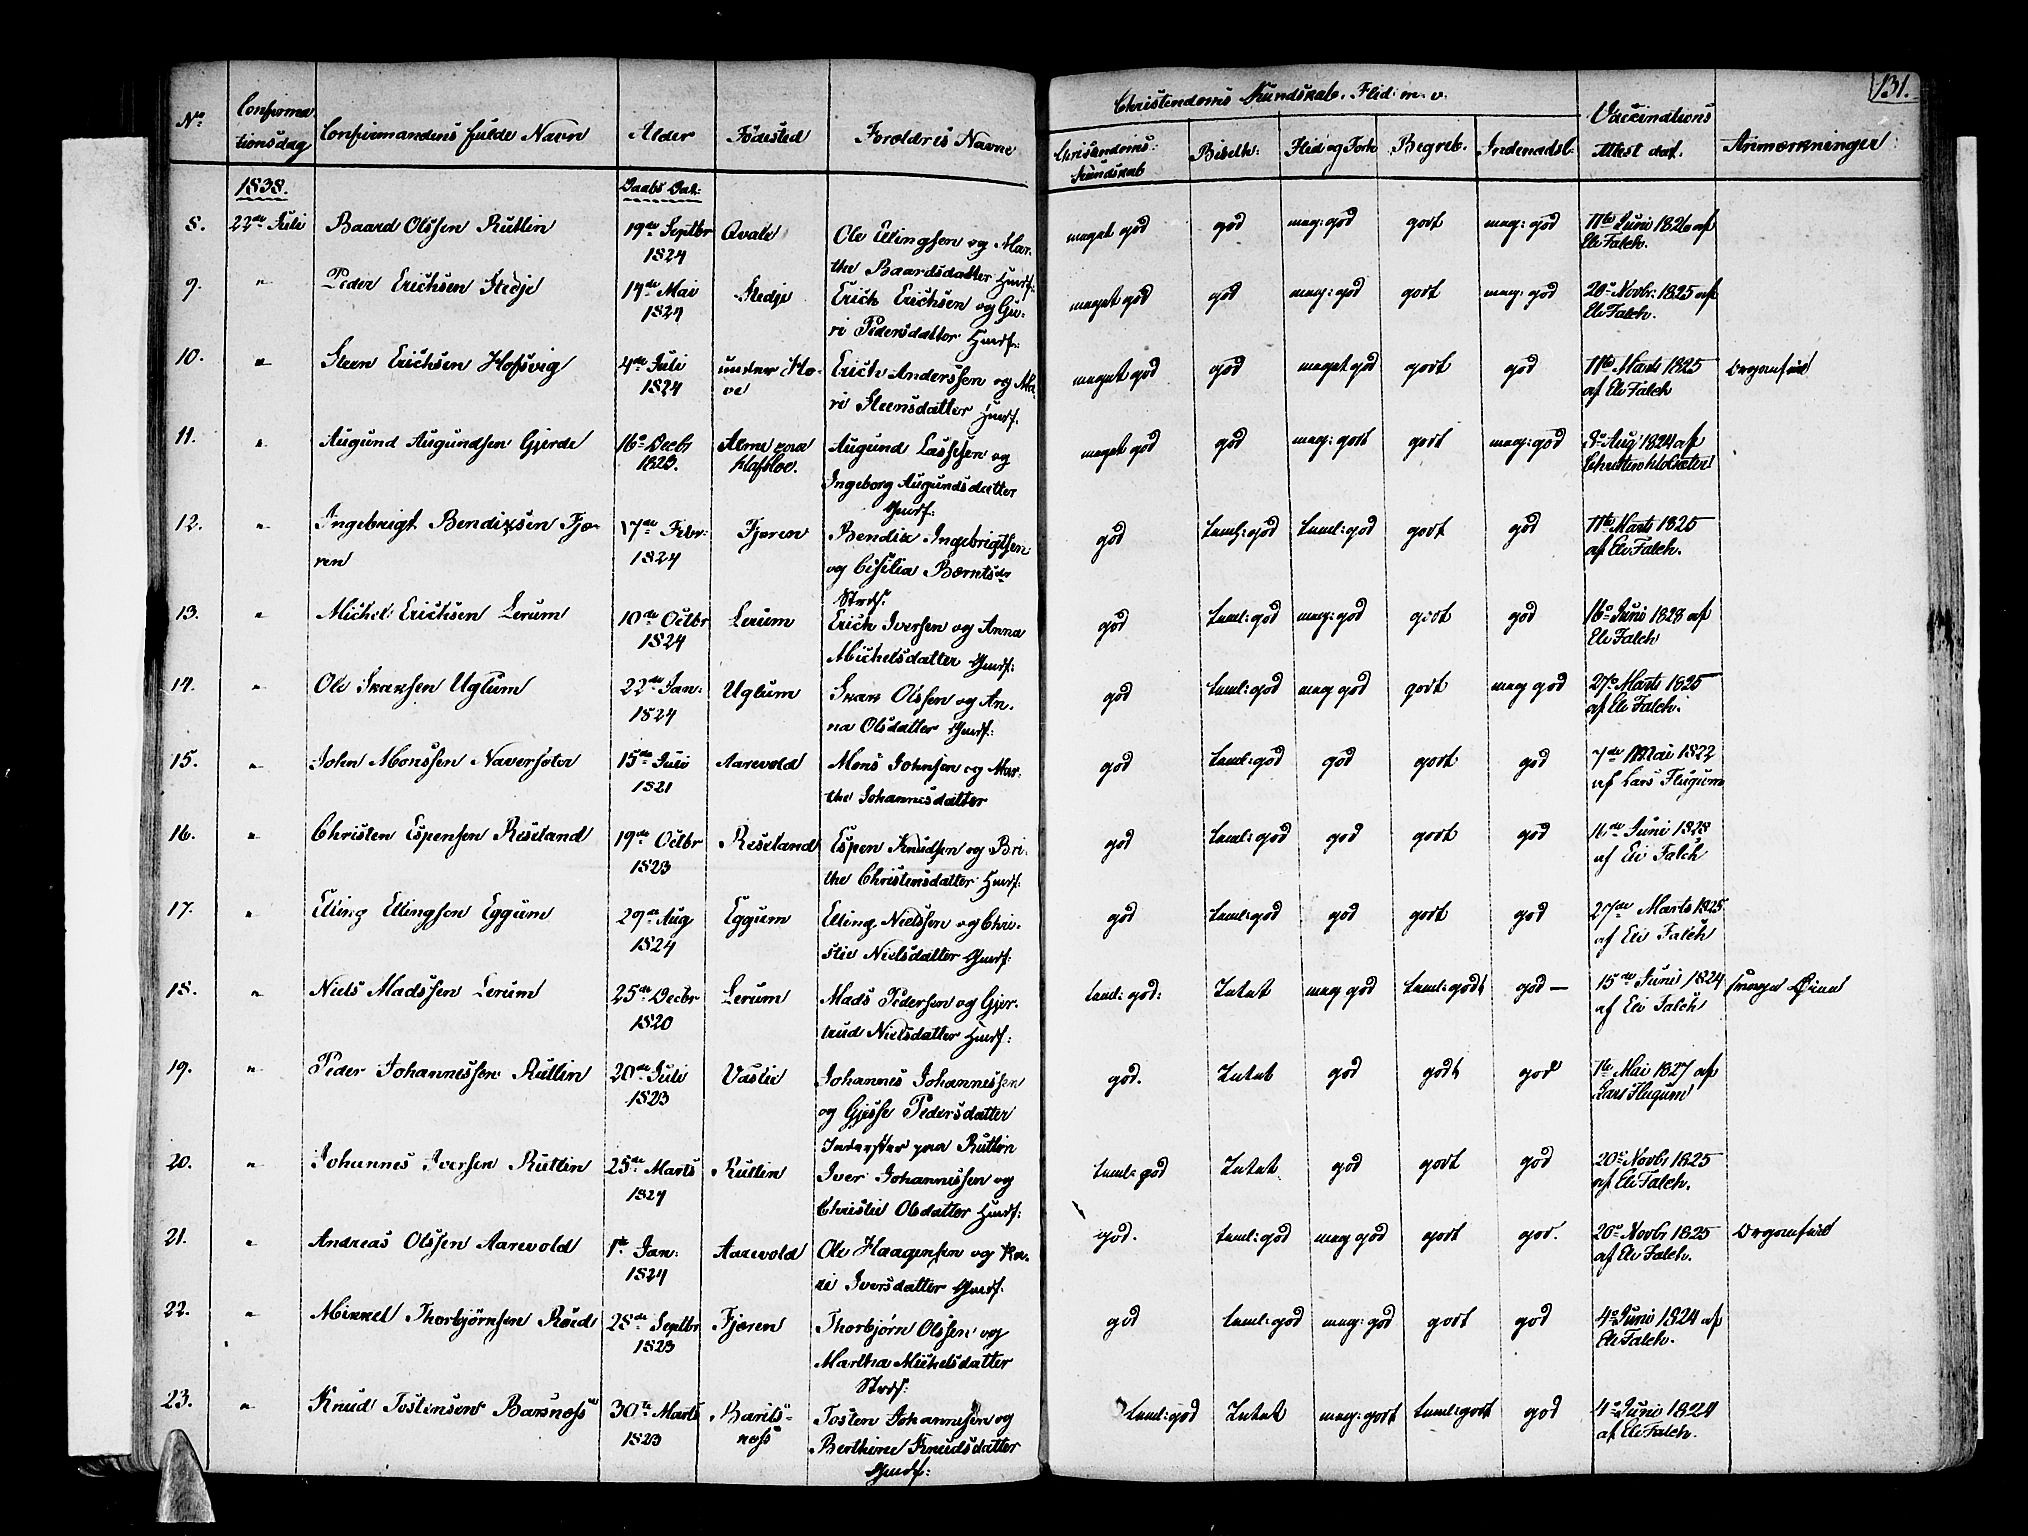 131.
No Confirmationsdag Confirmandens fulde Navn Alder Fødested Forældres Navne Christendoms Kundskab. Flid: m. v. Vaccinations Attest dat. Anmærkninger
Christendoms: Kundskab Bibelh: Flid og Forh Begreb. Indenadsl:
1838. Daabs Dat:
8. 22de Juli Baard Olssen Rutlin 19de Septbr 1824 Qvale Ole Ellingsen og Marthe Baardsdatter Gmdf: meget god god meg: god godt meg: god 11te Juni 1826 af Ele Falch.
9. " Peder Erichsen Stedje 14de Mai 1824 Stedje Erich Erichsen og Guri Pedersdatter Hmdf: meget god god meg: god godt meg: god 20de Novbr: 1825 af Ele Falch.
10. " Steen Erichsen Hofsvig 4de Juli 1824 under Hove Erich Anderssen og Mari Steensdatter Hmdf. meget god god meget god godt god 11te Marts 1825 af Ele Falch
11. " Augund Augundsen Gjerde 16de Decbr 1823. Alme paa Hafsloe. Augund Lassesen og Ingeborg Augundsdatter Gmdf: meget god god meg: godt godt meg: god Aug 1824 af
12. " Ingebrigt Bendixsen Fjæren 17de Febr: 1824 Fjæren Bendix Ingebrigtsen og Cisilia Berntsdr Strdf: god taml: god taml: god godt god 11te Marts 1825 af Ele Falch.
13. " Michel Erichsen Lerum 10de Octbr 1824 Lerum Erich Iversen og Anna Michelsdatter Gmdf: god taml: god meg: god godt god 16de Juni 1828 af Ele Falch
14. " Ole Ivarsen Uglum 22de Jan: 1824 Uglum Ivar Olssen og Anna Olsdatter Gmdf: god taml: god meg god godt meg god 27de Marts 1825 af Ele Falch.
15. " John Monssen Naversæter 15de Juli 1821 Aarevold Mons Johnsen og Marthe Johannesdatter god taml: god god godt god 7de Mai 1822 af Lars Flugum
16. " Christen Espensen Riseland 19de Octbr 1823 Riseland Espen Knudsen og Brithe Christensdatter Hmdf: god taml: god god godt god 11te Juni 1828 af Ele Falch
17. " Elling Ellingsen Eggum 29de Aug 1824 Eggum Elling Nielssen og Christie Nielsdatter Gmdf: god taml: god god godt god 27de Marts 1825 af Ele Falch
18. " Niels Madssen Lerum 25de Decbr 1820 Lerum Mads Pedersen og Gjertrud Nielsdatter Hmdf: taml: god: Intet meg god taml: godt god — 15de Juni 1824 af Ele Falch
19. " Peder Johannessen Rutlin 20de Juli 1823 Vaslie Johannes Johannessen og Gjesse Pedersdatter Inderster paa Rutlin god. Intet god godt god 1te Mai 1827 af Lars Flugum
20. " Johannes Iversen Rutlin 25de Marts 1824 Rutlin Iver Johannessen og Christie Olsdatter Hmdf: taml: god Intet god godt god 20de Novbr 1825 af Ele Falch.
21. " Andreas Olssen Aarevold 1te Jan: 1824 Aarevold Ole Haagensen og Kari Iversdatter Gmdf: god. taml: god meg god godt god. 20de Novbr 1825 af Ele Falch.
22. " Mikkel Thorbjørnsen Røid 28de Septbr 1823 Fjæren Thorbjørn Olssen og Martha Michelsdatter Strdf: god taml: god meg: god godt god 4de Juni 1824 af Ele Falch.
23. " Knud Tostensen Barsnæss 30te Marts 1823 Barsnæss Tosten Johannesen og Berthine Knudsdatter Gmdf: taml: god Intet meg: godt taml: godt god 4de Juni 1824 af Ele Falch.